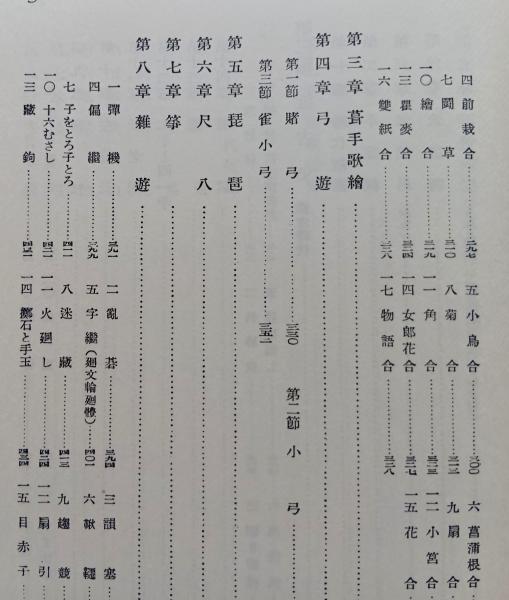 四 前栽合…………二九七 五 小鳥合…………三〇〇 六 菖蒲根合
七 鬪草…………三一〇 八 菊合…………三一二 九 扇合
一〇 繪合…………三一九 一一 角合…………三二三 一二 小筥合
一三 瞿麥合…………三二四 一四 女郎花合…………三二七 一五 花合
一六 雙紙合…………三二八 一七 物語合…………三二八
第三章 葺手歌繪…………
第四章 弓遊…………
第一節 賭弓…………三三〇 第二節 小弓…………
第三節 雀小弓…………三五二
第五章 琵琶…………
第六章 尺八…………
第七章 箏…………
第八章 雜遊…………
一 彈棊…………三九一 二 亂碁…………三九四 三 韻塞
四 偏繼…………三九九 五 字繼(廻文輪廻體)…………四〇一 六 鞦韆
七 子をとろ子とろ…………四一一 八 迷藏…………四一三 九 趨競
一〇 十六むさし…………四二一 一一 火廻し…………四二四 一二 扇引
一三 藏鉤…………四三一 一四 擲石と手玉…………四三四 一五 目赤子